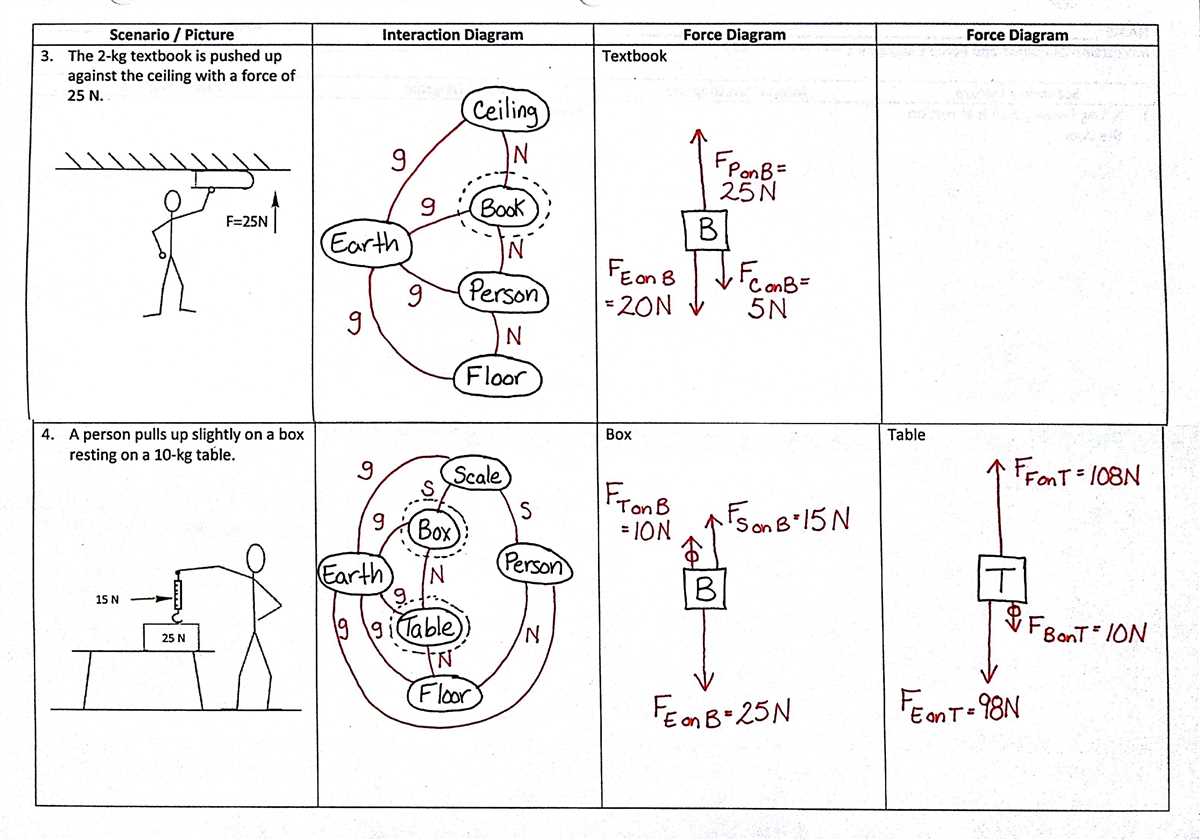 Scenario / Picture
Interaction Diagram
Force Diagram
Force Diagram
3. The 2-kg textbook is pushed up
against the ceiling with a force of
25 N.
F=25N
Ceiling
g
N
g
Book
Earth
N
g
Person
g
N
Floor
Textbook
FPonB=
25N
B
FEonB
=20N
FConB=
5N
4. A person pulls up slightly on a box
resting on a 10-kg table.
15 N
25 N
g
Scale
S
S
g
Box
Earth
N
Person
g
g
g
Table
N
N
Floor
Box
FTonB
=10N
FSonB=15N
B
FEonB=25N
Table
FFonT=108N
T
FBonT=10N
FEonT=98N